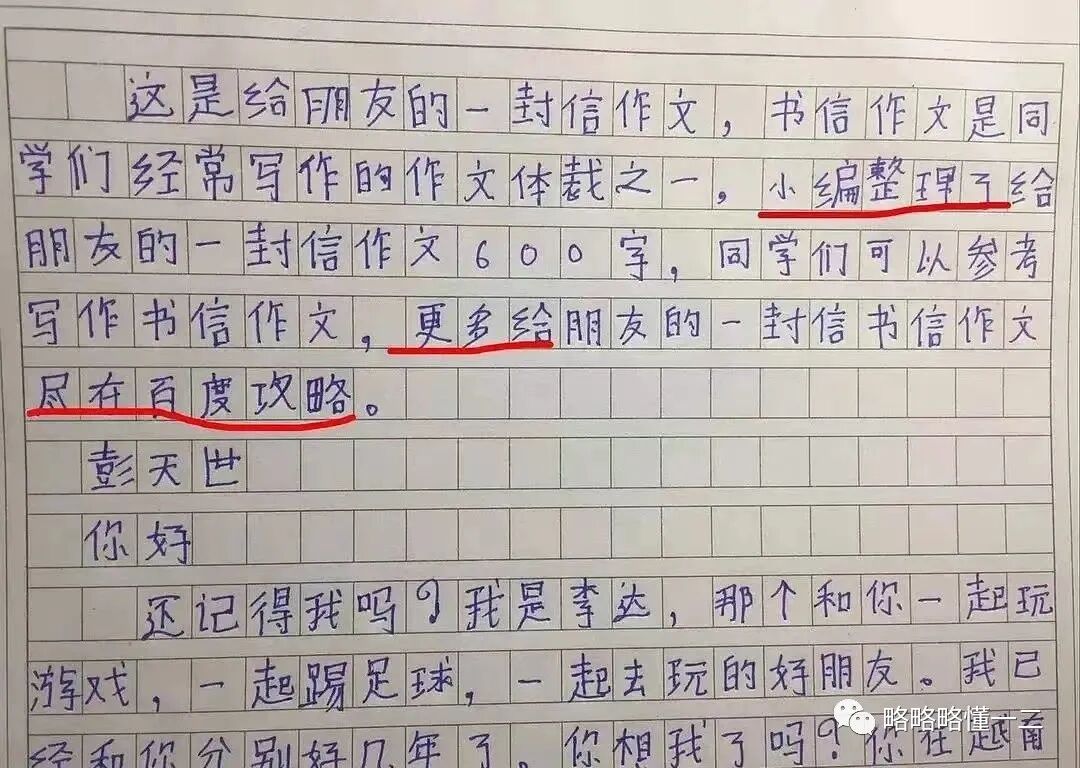 这是给朋友的一封信作文，书信作文是同
学们经常写作的作文体裁之一，小编整理了给
朋友的一封信作文600字，同学们可以参考
写作书信作文，更多给朋友的一封信书信作文
尽在百度攻略。
彭天世
你好
还记得我吗？我是李达，那个和你一起玩
游戏，一起踢足球，一起去玩的好朋友。我已
经和你分别好几年了，你想我了吗？你在越南
略略略懂一二